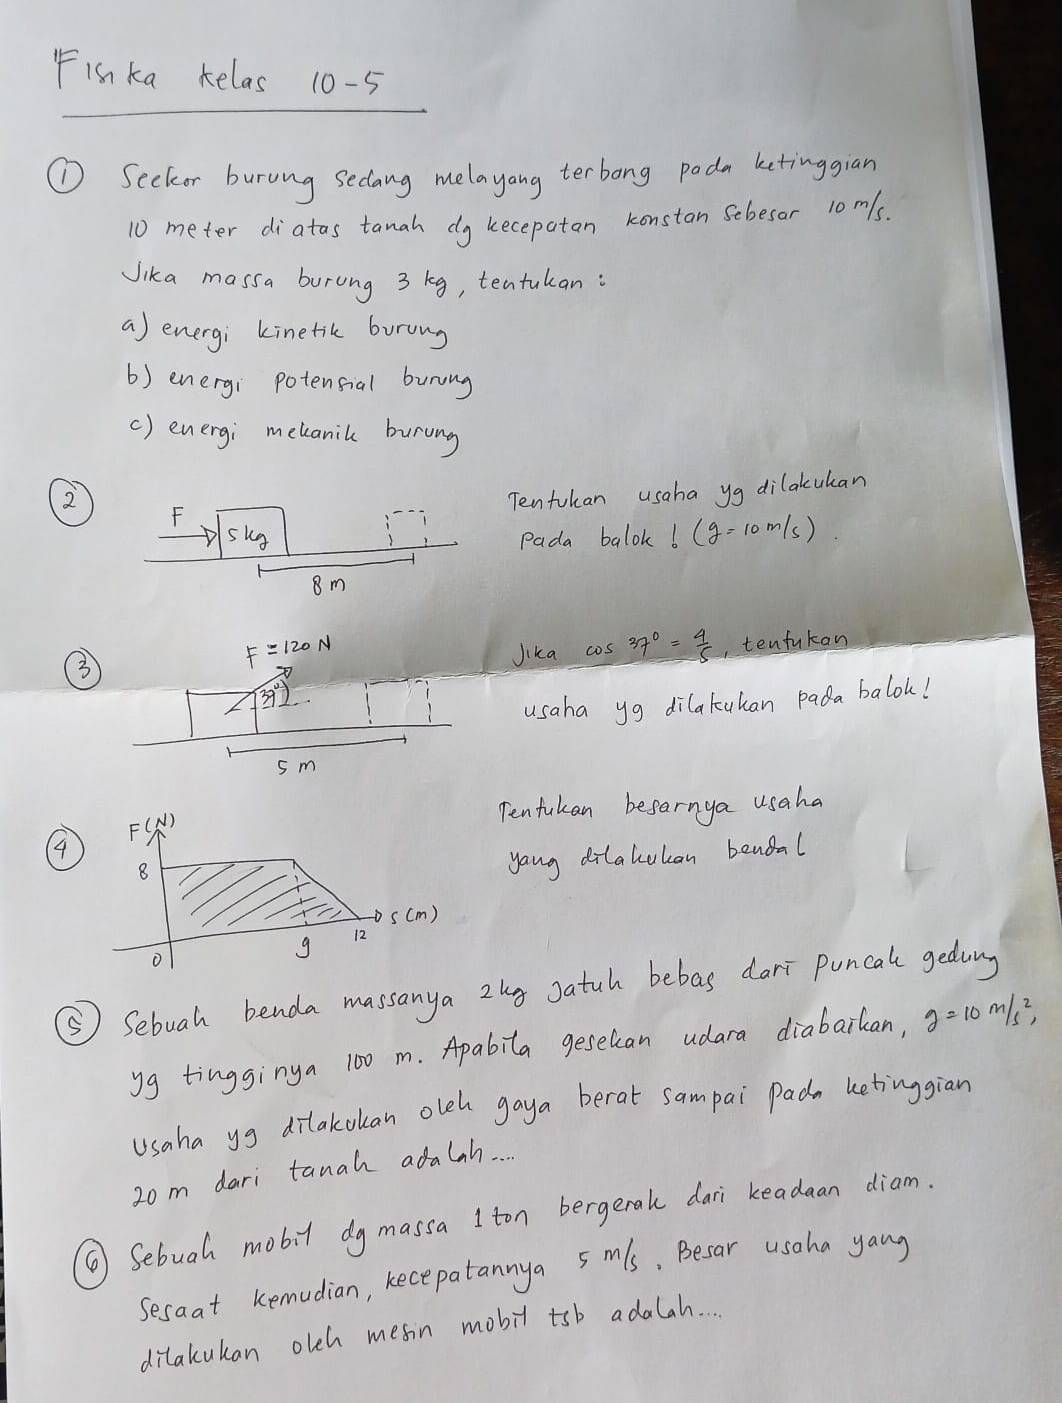 Fisika kelas 10-5
① Seekor burung sedang melayang terbang pada ketinggian
10 meter di atas tanah dg kecepatan konstan sebesar 10 m/s.
Jika massa burung 3 kg, tentukan :
a) energi kinetik burung
b) energi potensial burung
c) energi mekanik burung
②
F
5 kg
8 m
Tentukan usaha yg dilakukan
pada balok ! (g = 10 m/s).
③
F = 120 N
37°
5 m
Jika cos 37° = 4/5, tentukan
usaha yg dilakukan pada balok!
④
F(N)
8
0
9
12
s (m)
Tentukan besarnya usaha
yang dilakukan benda!
⑤ Sebuah benda massanya 2 kg jatuh bebas dari puncak gedung
yg tingginya 100 m. Apabila gesekan udara diabaikan, g = 10 m/s²,
usaha yg dilakukan oleh gaya berat sampai pada ketinggian
20 m dari tanah adalah....
⑥ Sebuah mobil dg massa 1 ton bergerak dari keadaan diam.
Sesaat kemudian, kecepatannya 5 m/s. Besar usaha yang
dilakukan oleh mesin mobil tsb adalah...